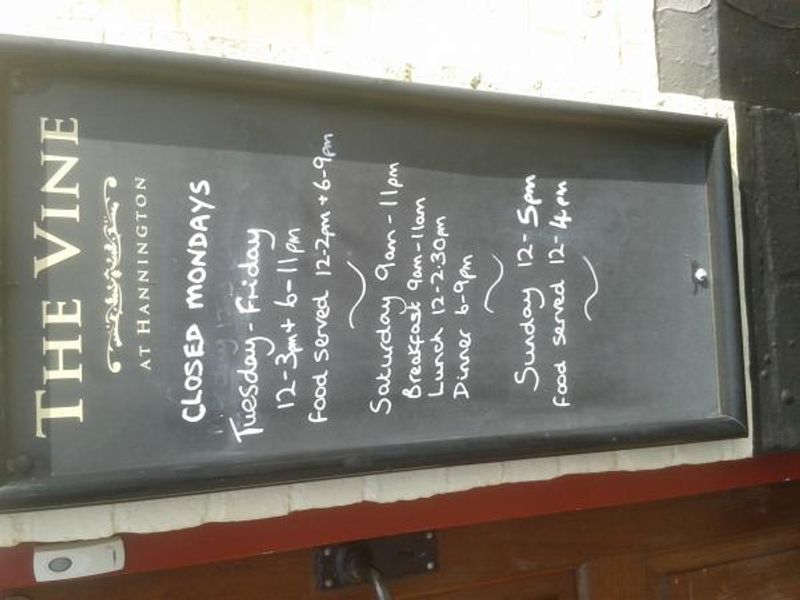 THE VINE
AT HANNINGTON
CLOSED MONDAYS
Tuesday - Friday
12-3pm + 6-11pm
Food served 12-2pm + 6-9pm
Saturday 9am - 11pm
Breakfast 9am - 11am
Lunch 12-2.30pm
Dinner 6-9pm
Sunday 12-5pm
Food served 12-4pm